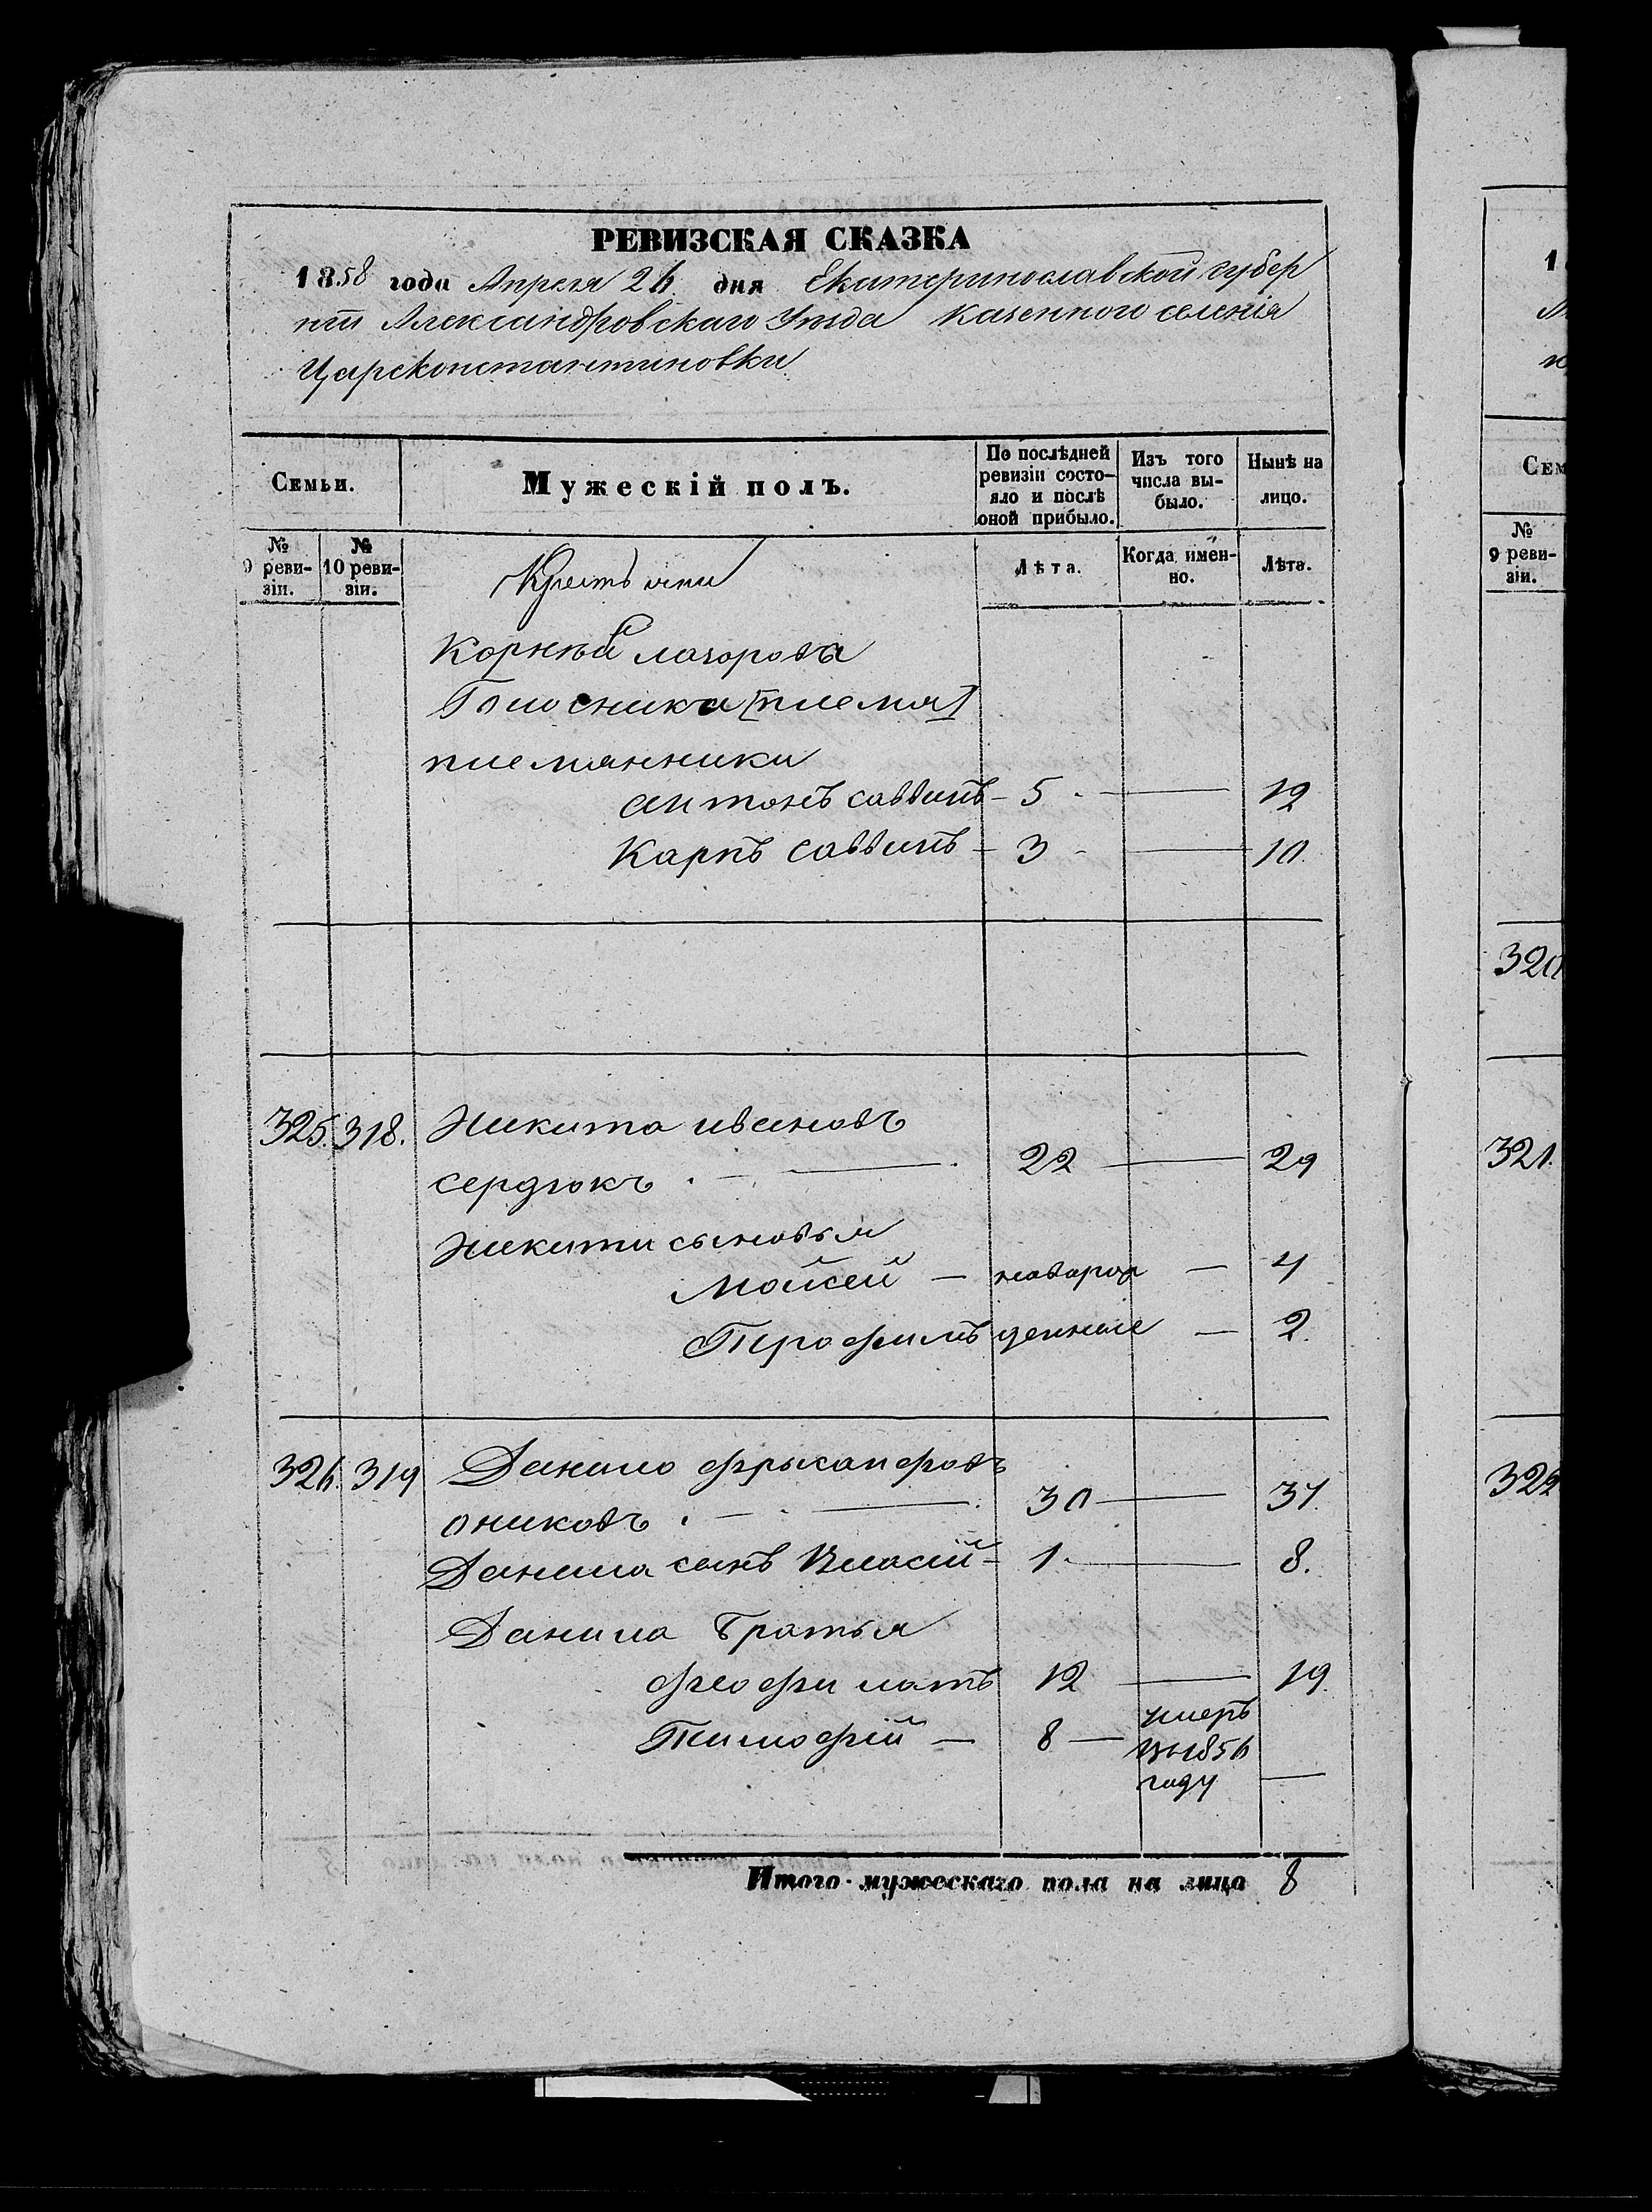 РЕВИЗСКАЯ СКАЗКА
1858 года Апреля 26 дня Екатеринославской губер
нiи Александровскаго Уезда казенного селенiя
Царсконстантиновки
Семьи.
Мужескій полъ.
По послѣдней ревизіи состо-
яло и послѣ оной прибыло.
Изъ того числа вы-
было.
Нынѣ на лицо.
№ 9 реви-
зіи.
№ 10 реви-
зіи.
Крестьяни
Лѣта.
Когда имен-
но.
Лѣта.
Корнѣй
[племя]
племянники
антонъ саввинъ - 5 - 12
Карпъ саввинъ - 3 - 10.
325. 318. Никита ивановъ
сердюкъ. 22 - 29
Никити сыновья
Мойсей - новорож - 4
Трофимъ денные - 2.
326. 319 Данило
ониковъ. 30 - 37.
Данила сынъ Власiй - 1. - 8.
Данила братья
феофилатъ 12 - 19.
Тимофiй - 8 - умеръ
въ 1856
году -
Итого мужескаго пола на лицо 8
1
Сем
№
9 реви-
зіи.
320
321.
322